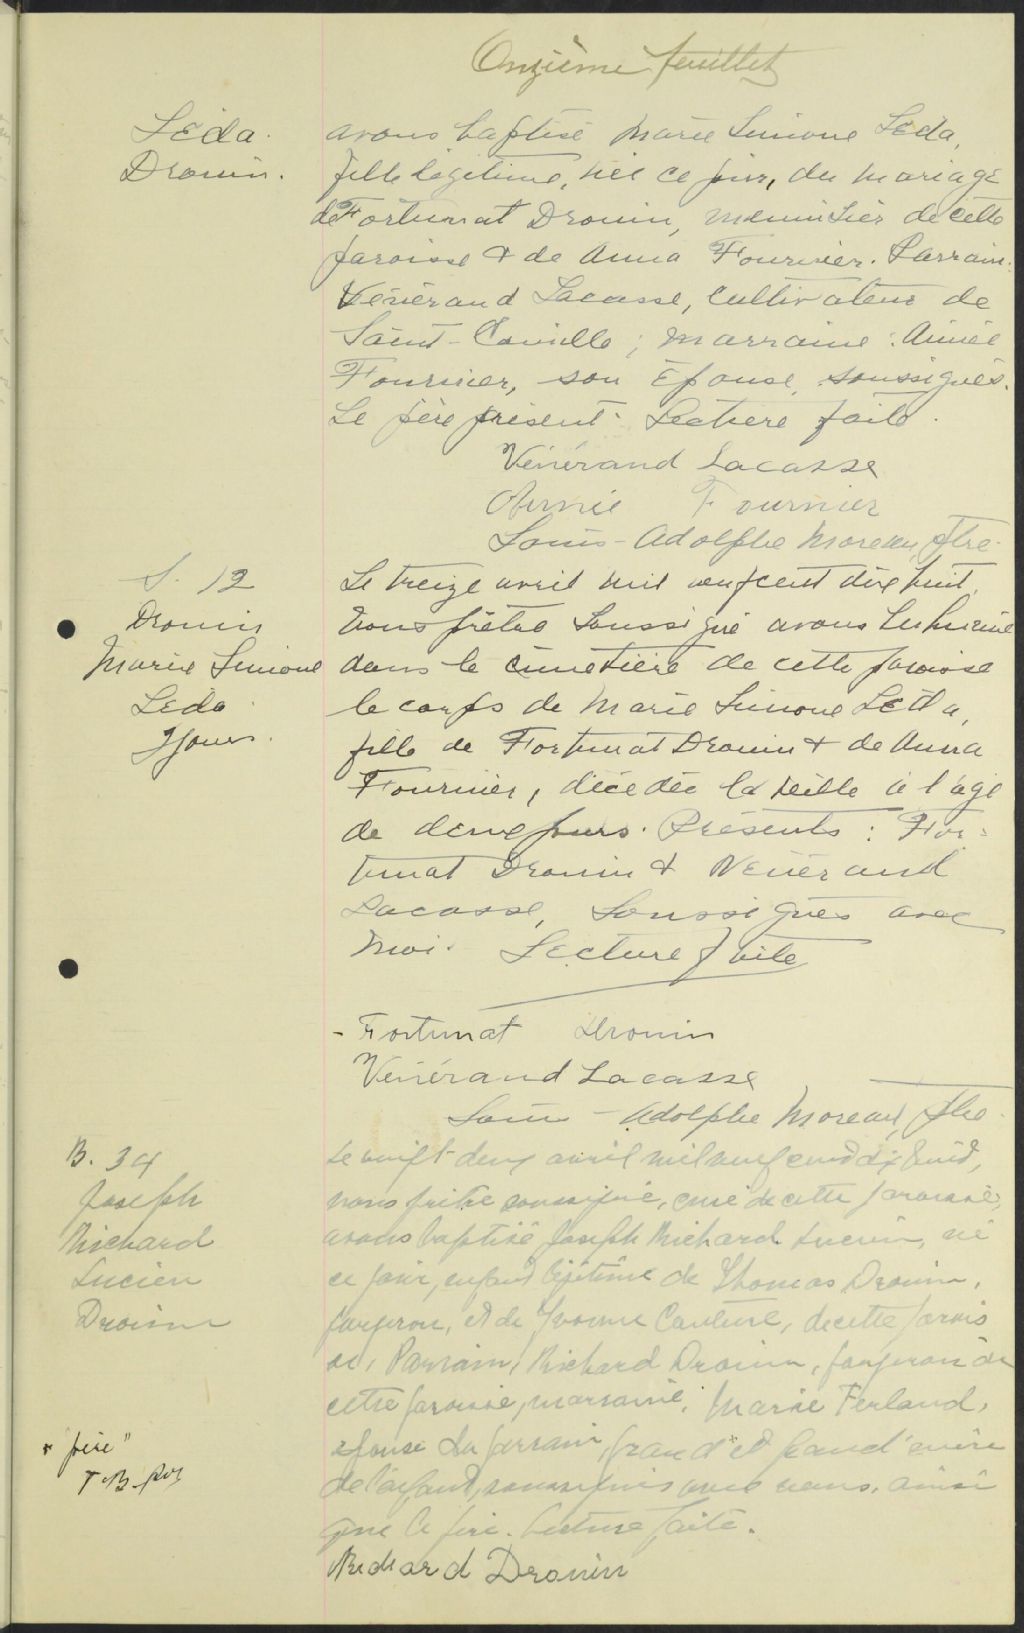 Onzième feuillet
Léda
Drouin.
avons baptisé Marie Simone Léda,
fille légitime, née ce jour, du mariage
de Fortunat Drouin, menuisier de cette
paroisse & de Anna Fournier. Parrain:
Vénérand Lacasse, cultivateur de
Saint-Camille; marraine: Aimée
Fournier, son épouse, soussignés.
Le père présent. Lecture faite.
Vénérand Lacasse
Aimée Fournier
Louis-Adolphe Moreau, Ptre.
S. 12
Drouin
Marie Simone
Léda
jours.
Le treize avril mil neuf cent dix huit,
nous prêtre soussigné avons inhumé
dans le cimetière de cette paroisse
le corps de Marie Simone Léda,
fille de Fortunat Drouin & de Anna
Fournier, décédée la veille à l'âge
de deux jours. Présents: For-
tunat Drouin & Vénérand
Lacasse, soussignés avec
moi. Lecture faite
- Fortunat Drouin
Vénérand Lacasse
Louis-Adolphe Moreau, Ptre.
B. 34
Joseph
Richard
Lucien
Drouin
Le vingt-deux avril mil neuf cent dix huit,
nous prêtre soussigné, curé de cette paroisse,
avons baptisé Joseph Richard Lucien, né
ce jour, enfant légitime de Thomas Drouin,
forgeron, et de Yvonne Couture, de cette parois
se, Parrain, Richard Drouin, forgeron de
cette paroisse, marraine, Marie Ferland,
épouse du parrain, grand "et grand'mère
de l'enfant, soussignés avec nous, ainsi
que le père. Lecture faite.
" père"
Richard Drouin